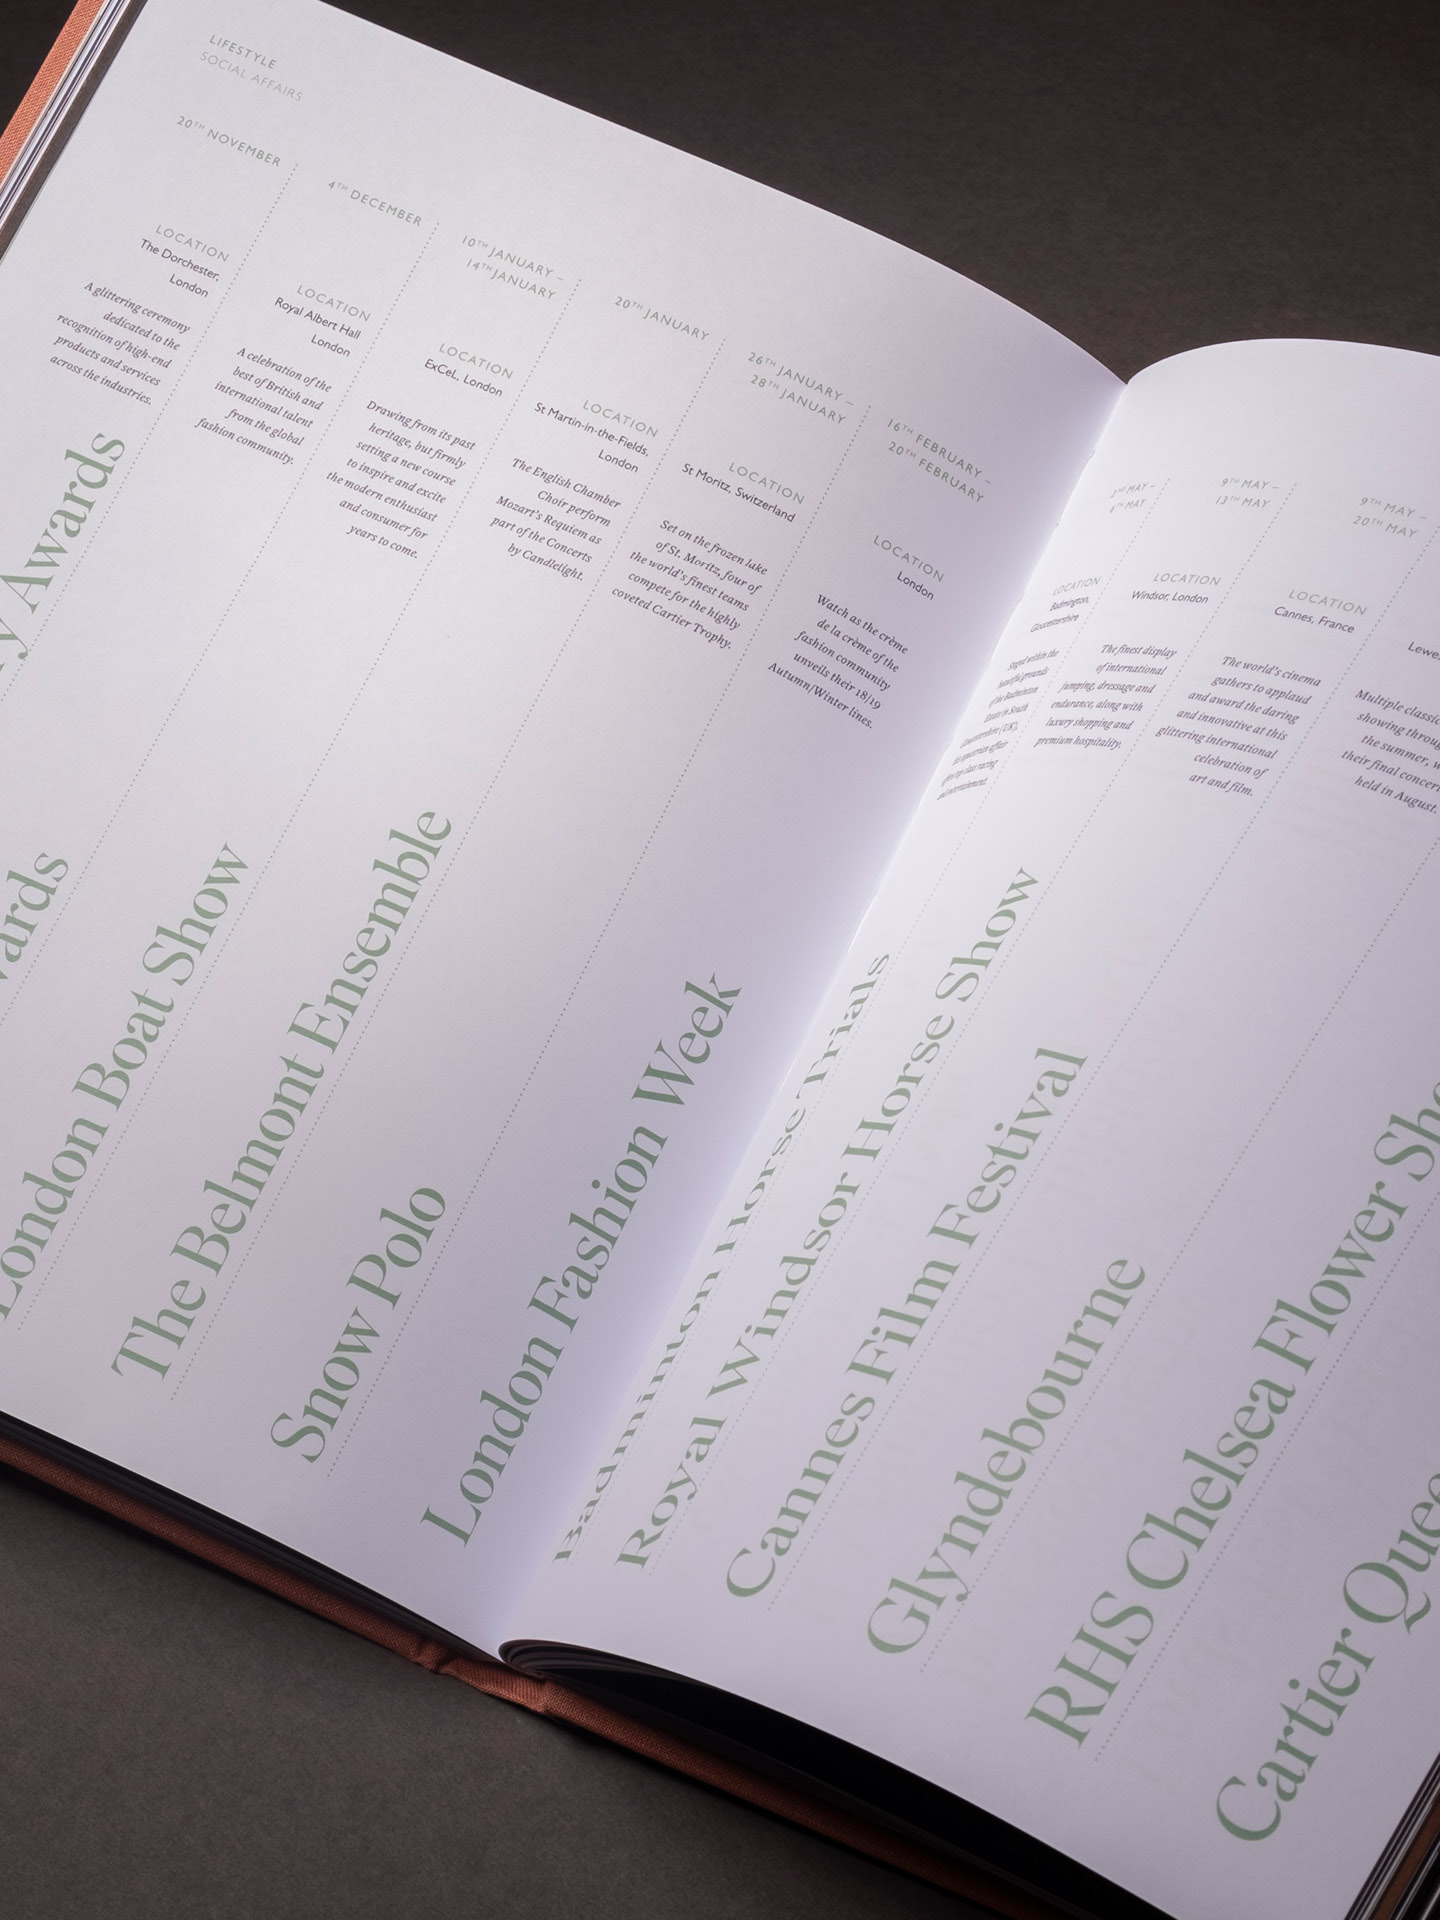 LIFESTYLE
SOCIAL AFFAIRS
20TH NOVEMBER
LOCATION
The Dorchester,
London
A glittering ceremony
dedicated to the
recognition of high-end
products and services
across the industries.
Awards
4TH DECEMBER
LOCATION
Royal Albert Hall
London
A celebration of the
best of British and
international talent
from the global
fashion community.
10TH JANUARY –
14TH JANUARY
LOCATION
ExCeL, London
Drawing from its past
heritage, but firmly
setting a new course
to inspire and excite
the modern enthusiast
and consumer for
years to come.
London Boat Show
20TH JANUARY
LOCATION
St Martin-in-the-Fields,
London
The English Chamber
Choir perform
Mozart's Requiem as
part of the Concerts
by Candlelight.
The Belmont Ensemble
26TH JANUARY –
28TH JANUARY
LOCATION
St Moritz, Switzerland
Set on the frozen lake
of St. Moritz, four of
the world's finest teams
compete for the highly
coveted Cartier Trophy.
Snow Polo
16TH FEBRUARY –
20TH FEBRUARY
LOCATION
London
Watch as the crème
de la crème of the
fashion community
unveils their 18/19
Autumn/Winter lines.
London Fashion Week
2ND MAY –
6TH MAY
LOCATION
Badminton,
Gloucestershire
Staged within the
beautiful grounds
of the Badminton
Estate in South
Gloucestershire (UK),
this equestrian affair
offers top class racing
and entertainment.
Badminton Horse Trials
9TH MAY –
13TH MAY
LOCATION
Windsor, London
The finest display
of international
jumping, dressage and
endurance, along with
luxury shopping and
premium hospitality.
Royal Windsor Horse Show
9TH MAY –
20TH MAY
LOCATION
Cannes, France
The world's cinema
gathers to applaud
and award the daring
and innovative at this
glittering international
celebration of
art and film.
Cannes Film Festival
Multiple classic
showing throug
the summer, w
their final concer
held in August.
Glyndebourne
RHS Chelsea Flower Sho
Cartier Quee